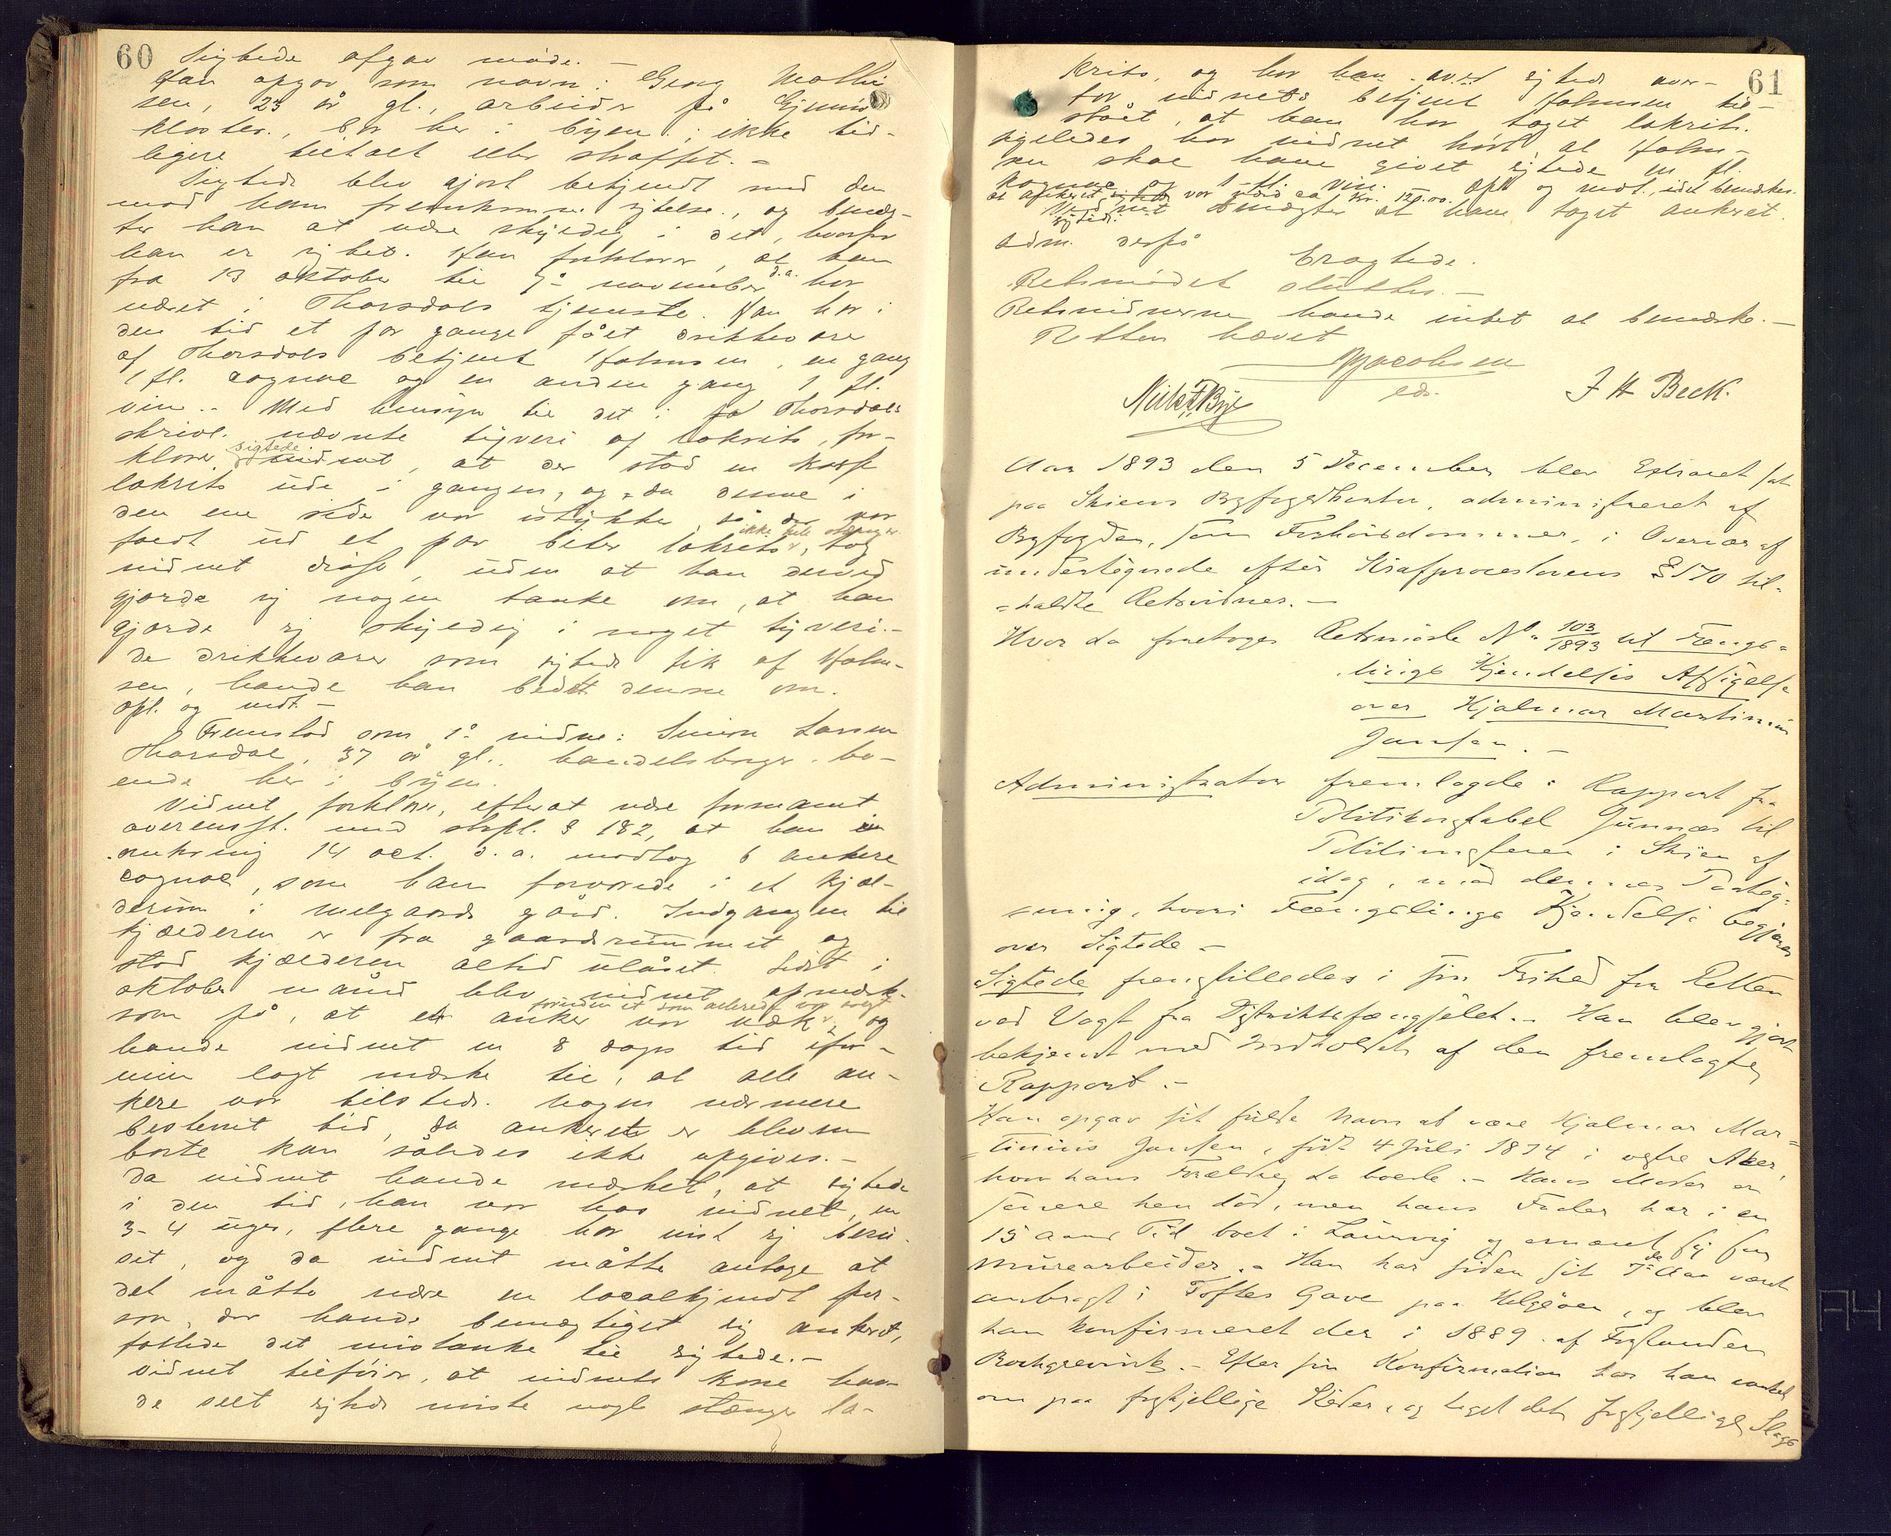 60
Sigtede afgav møde. –
Han opgav som navn: Georg Mathi-
sen, 23 år gl., arbeider på Gjemsø
kloster, bor her i byen; ikke tid-
ligere tiltalt eller straffet. –
Sigtede blev gjort bekjendt med den
mod ham fremkomne sigtelse, og benæg-
ter han at være skyldig i det, hvorfor
han er sigtet. Han forklarer, at han
fra 13 oktober til 9de november d.a. har
været i Thorsdals tjeneste. Han har i
den tid et par gange fået drikkevare
af Thorsdals betjent Holmsen, en gang
1 fl. cognac og en anden gang 1 fl.
vin. – Med hensyn til det i Thorsdals
skrivl. nævnte tyveri af lakrits, for-
klarer sigtede vidnet, at der stod en kasse
lakrits ude i gangen, og da denne i
den ene side var istykker, så der var
faldt ud et par biter lakrits, ikke hele stænger, tog
vidnet disse, uden at han derved
gjorde sig nogen tanke om, at han
gjorde sig skyldig i noget tyveri. –
De drikkevarer som sigtede fik af Holm-
sen, havde han bedt denne om.
Opl. og vedt. –
Fremstod som 1ste vidne: Simon Larsen
Thorsdal, 37 år gl., handelsborger, bo-
ende her i byen.
Vidnet forklarer, efterat være formanet
overensst. med strpl. § 182, at han
omkring 14 oct. d.a. modtog 6 ankere
cognac, som han forvarede i et kjæl-
derrum i Melgaards gård. Indgangen til
kjælderen er fra gaardsrummet og
stod kjælderen altid ulåset. Sidst i
oktober måned blev vidnet opmærk-
som på, at et anker var væk, foruden et som allerede var solgt og
havde vidnet en 8 dages tid ifor-
veien lagt mærke til, at alle an-
kere var tilstede. Nogen nærmere
bestemt tid, da ankeret er bleven
borte kan således ikke opgives. –
Da vidnet havde mærket, at sigtede
i den tid, han var hos vidnet, en
3-4 uger, flere gange har vist sig beru-
set, og da vidnet måtte antage at
det måtte være en localkjendt per-
son, der havde bemægtiget sig ankeret,
fattede det mistanke til sigtede. –
Vidnet tilføier, at vidnets kone hav-
de seet sigtede miste nogle stænger la-
61
krits, og har han sigtede over-
for vidnets betjent Holmsen til-
stået, at han har taget lakrits.
Ligeledes har vidnet hørt, at Holm-
sen skal have givet sigtede en fl.
kognac og 1 fl. vin. Opl. og vedt., idet bemærkes
at ankeret var værd ca. kr. 120.00.
Sigtede benægter at have taget ankeret.
Adm. derpå
Eragtede.
Retsmødet sluttes. –
Retsvidnerne havde intet at bemærke. –
Retten hævet
Jacobsen
eds.
Niels Bye
J H Beck.
Aar 1893 den 5 December blev Extraret sat
paa Skiens Byfogedkontor, administreret af
Byfogden, som Forhørsdommer, i Overvær af
undertegnede efter Strafproceslovens § 570 til-
=kaldte Retsvidner. –
Hvor da foretoges Retsmøde No. 103/1893 til Fængs-
lings Kjendelses Afsigelse
over Hjalmar Martinius
Jansen. –
Administrator fremlagde: Rapport fra
Politikonstabel Gunnæs til
Politimesteren i Skien af
idag, med dennes Paateg-
ning, hvori Fængslings Kjendelse begjæres
over Sigtede –
Sigtede fremstilledes i sin Frihed for Retten
ved Vagt fra Distriktsfængslet. – Han blev gjort
bekjendt med Indholdet af den fremlagte
Rapport. –
Han opgav sit fulde Navn at være Hjalmar Mar-
=tinius Jansen, født 4 Juli 1874 i østre Aker,
hvor hans Forældre da boede. – Hans Moder er
senere hen død, men hans Fader har i en
15 Aars Tid boet i Laurvig og ernæret sig som
Murearbeider. – Han har siden sit 7de Aar været
anbragt i Toftes Gave paa Helgøen, og blev
han konfirmeret der i 1889 af Frstander
Borchgrevink. – Efter sin Konfirmation har han vanket
om paa forskjellige Steder, og taget det forskjellige Slags